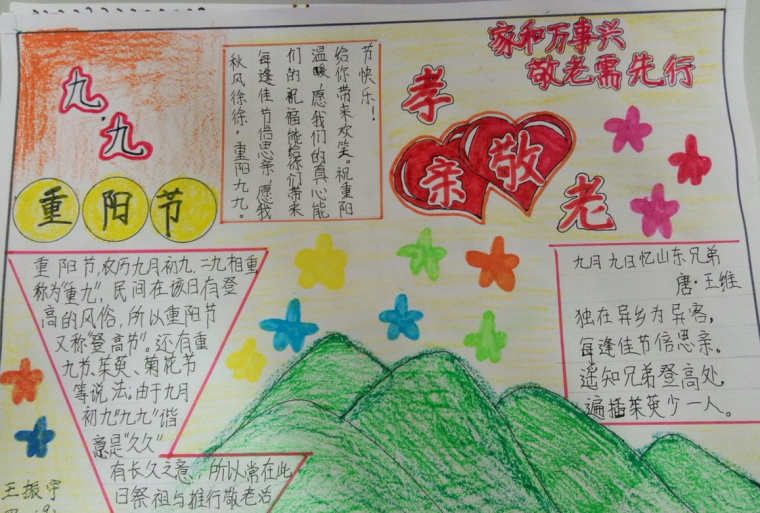 家和万事兴
敬老需先行
九·九
重阳节
秋风徐徐，重阳九九。
每逢佳节倍思亲，愿我
们的祝福能给你们带来
温暖，愿我们的真心能
给你带来欢笑。祝重阳
节快乐！
孝
亲 敬
老
重阳节，农历九月初九，二九相重
称为"重九"，民间在该日有登
高的风俗，所以重阳节
又称"登高节"。还有重
九节、茱萸、菊花节
等说法；由于九月
初九"九九"谐
意是"久久"
有长久之意，所以常在此
日祭祖与推行敬老活
九月九日忆山东兄弟
唐·王维
独在异乡为异客，
每逢佳节信思亲。
遥知兄弟登高处，
遍插茱萸少一人。
王振宇